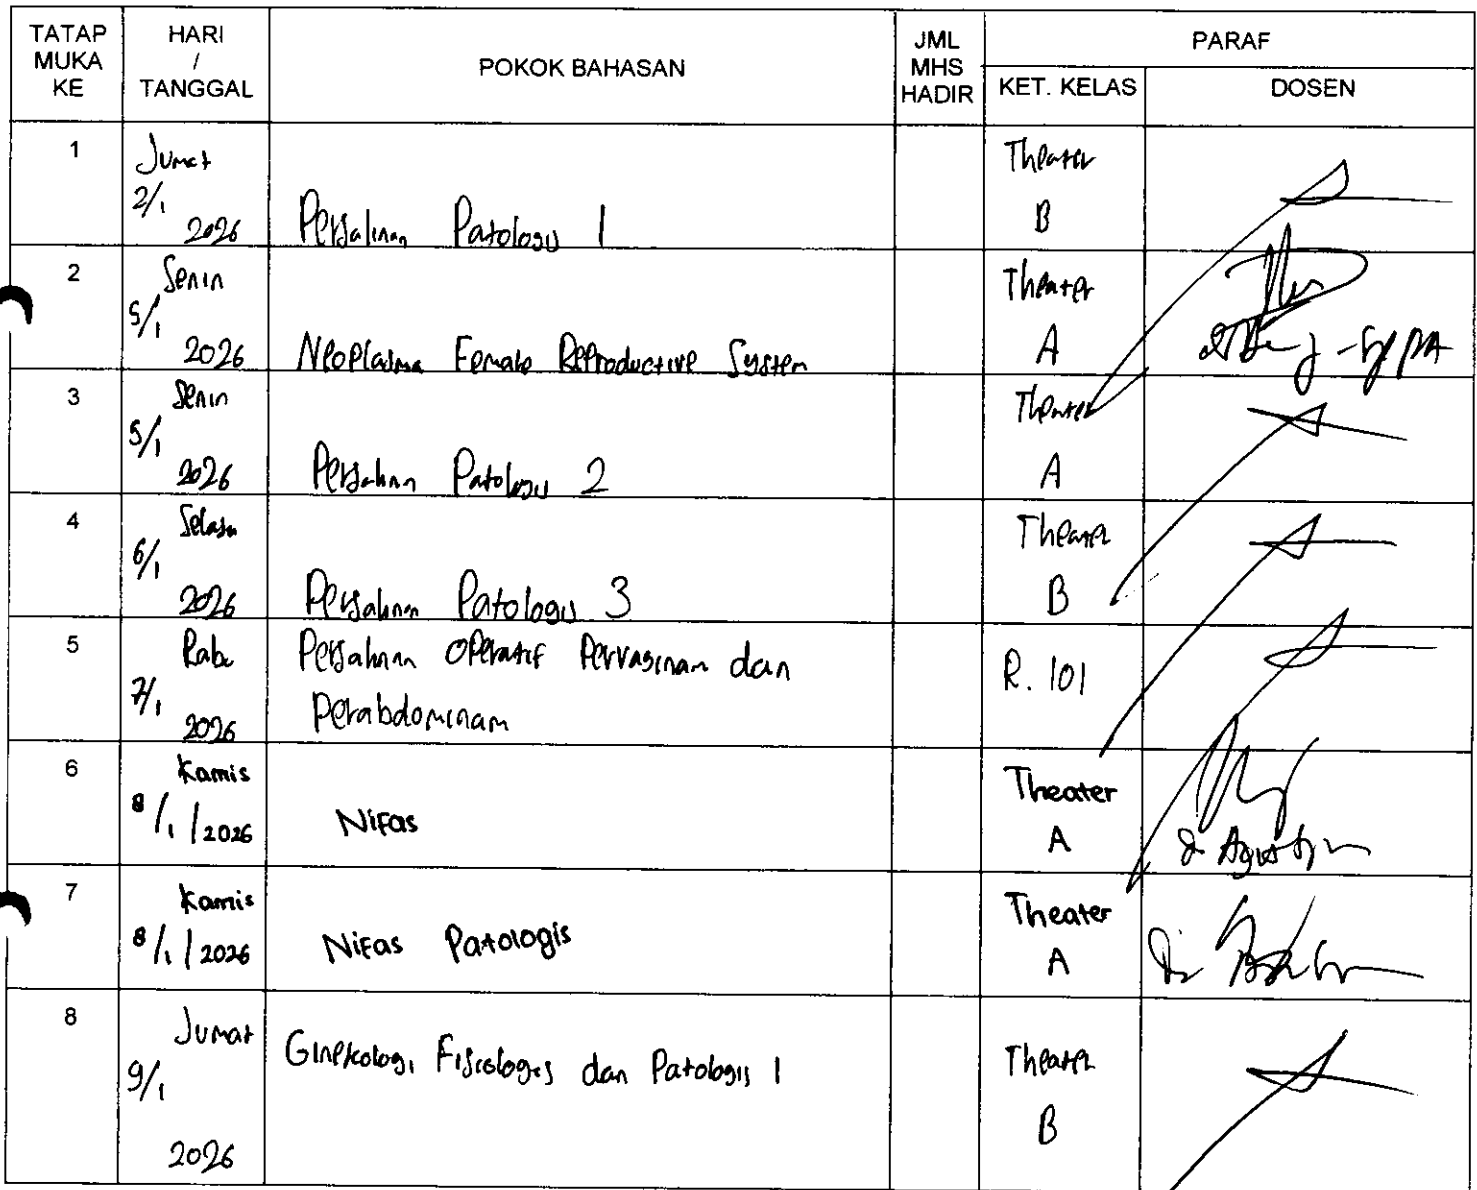 TATAP MUKA KE
HARI / TANGGAL
POKOK BAHASAN
JML MHS HADIR
PARAF
KET. KELAS
DOSEN
1
Jumat
2/1
2026
Persalinan Patologis 1
Theater
B
2
Senin
5/1
2026
Neoplasma Female Reproductive System
Theater
A
3
Senin
5/1
2026
Persalinan Patologis 2
Theater
A
4
Selasa
6/1
2026
Persalinan Patologis 3
Theater
B
5
Rabu
7/1
2026
Persalinan Operatif Pervaginam dan
Perabdominam
R. 101
6
Kamis
8/1/2026
Nifas
Theater
A
dr Agust
7
Kamis
8/1/2026
Nifas Patologis
Theater
A
8
Jumat
9/1
2026
Ginekologi Fisiologis dan Patologis 1
Theater
B